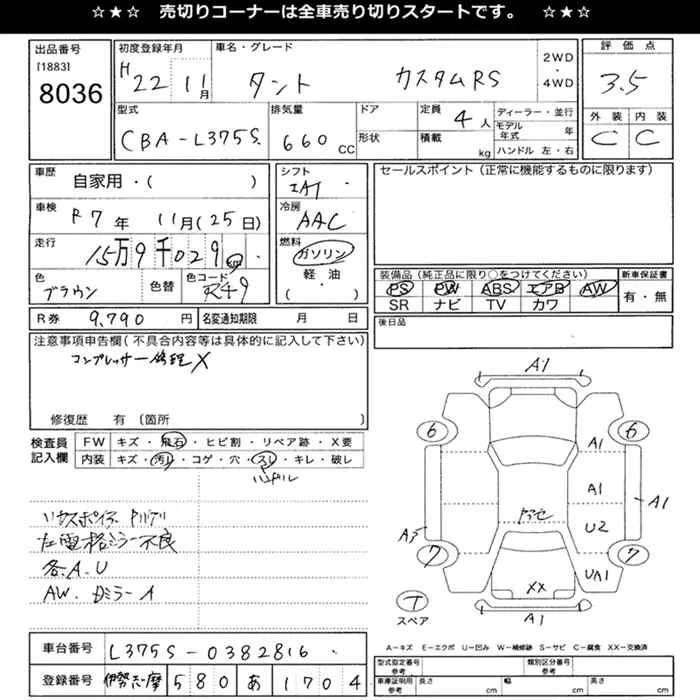 ☆★☆ 売切りコーナーは全車売り切りスタートです。 ☆★☆
出品番号 [1883] 8036
初度登録年月 H22 11月
車名・グレード タント カスタムRS
2WD・4WD
評価点 3.5
外装 C 内装 C
型式 CBA-L375S
排気量 660 cc
ドア 形状
定員 4人
積載 kg
ディーラー・並行
モデル年式 年
ハンドル 左・右
車歴 自家用・( )
車検 R7年 11月(25日)
走行 15万9千029km
色 ブラウン 色替 色コード R49
シフト IAT
冷房 AAC
燃料 ガソリン・軽油 ( ・ )
セールスポイント(正常に機能するものに限ります)
装備品(純正品に限り○をつけてください)
PS PW ABS エアB AW
SR ナビ TV カワ
新車保証書 有・無
R券 9,790円
名変通知期限 月 日
後日品
注意事項申告欄(不具合内容等は具体的に記入して下さい)
コンプレッサー修理X
修復歴 有 〔箇所 〕
検査員記入欄
FW キズ・飛石・ヒビ割・リペア跡・X要
内装 キズ・汚レ・コゲ・穴・スレ・キレ・破レ
ハンドル
左電格ミラー不良
各A.U
AW. DミラーA
A1
6 6
A1
A1
A1
U2
7 7
UA1
XX
A1
T
スペア
A-キズ E-エクボ U-凹み W-補修跡 S-サビ C-腐食 XX-交換済
車台番号 L375S-0382816
登録番号 伊勢志摩 580 あ 1704
型式指定番号 参考
類別区分番号 参考
車庫証明用 参考 長さ cm 幅 cm 高さ cm